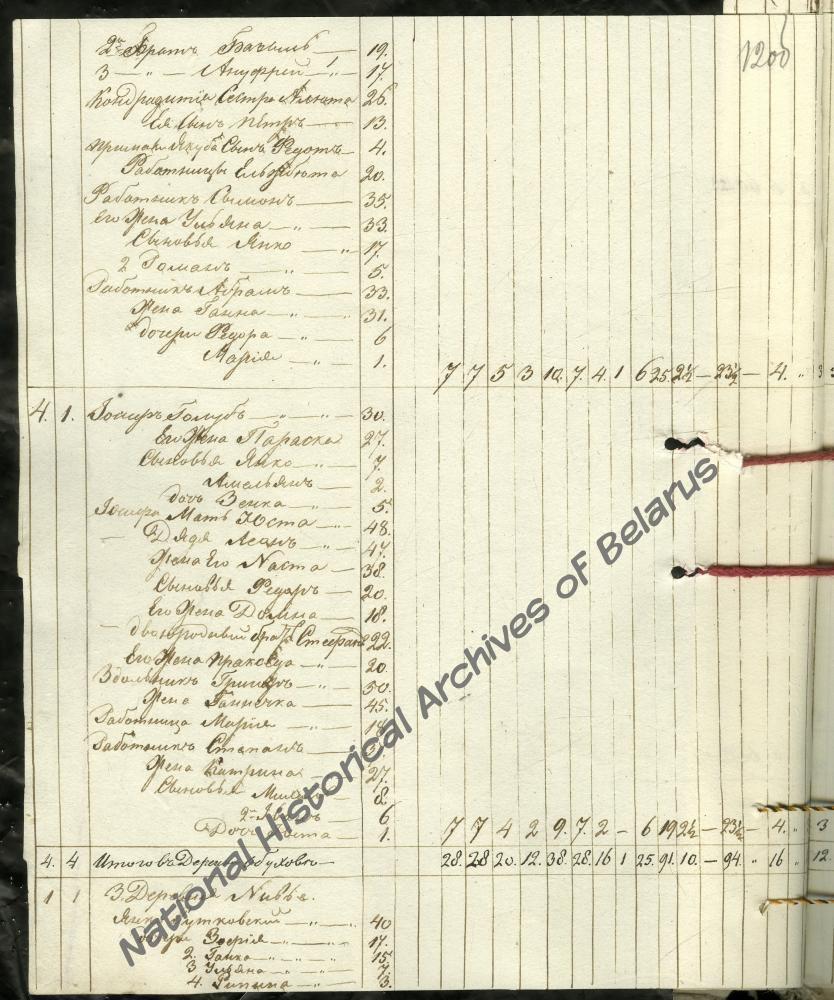 120об
2й Братъ Базыль — 19.
3 — " — Ануфрей — " — 17.
Кондратія Сестра Алюта 26
Ея Сынъ Петръ — 13.
Якуба Сынъ Федотъ 4.
Работницы Ельжбюта 20.
Работникъ Сымонъ — 35.
Его Жена Ульяна — " — 33.
Сыновья Янко — " — 17.
2 Романъ — " — 5.
Работникъ Абрамъ — 33.
Жена Ганна — " — 31.
дочери Федора — " — 6
Марія — " — 1.
7 7 5 3 10. 7. 4. 1 6 25. 2½ — 23½ — 4. " 3
4. 1. Іосифъ Голубъ — " — 30.
Его Жена Параска 27.
Сыновья Янко — " — 7.
Амельянъ — 2.
дочь Зенка — " — 5.
Іосифа Мать Юста — " — 48.
Дядя Асанъ — " — 47.
Жена Его Наста — " — 38.
Сыновья Федоръ — 20.
Его Жена Домна — 18.
двоюродный братъ Стефанъ 22.
Его Жена Праковда — " — 20.
Григоръ — " — 50.
Жена Ганночка — 45.
Работница Марія — " — 18
Работникъ Степанъ —
Жена Катрина 27.
Сыновья 8.
2й 6
Дочь — 1.
7 7 4 2 9. 7. 2 — 6 19 2½ — 23½ — 4. " 3
4. 4 Итого въ Деревни 28. 28 20. 12. 38. 28. 16 1 25. 91. 10. — 94. " 16 " 12.
1 1 3. Деревня Нивы.
Янъ — " — 40
дочери Зофія — " — 17.
2. Ганна — " — 15
3 Ульяна — " — 7.
4. — " — 3.
National Historical Archives of Belarus